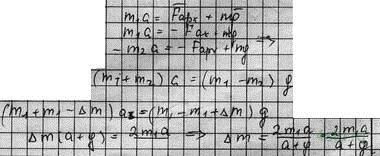 m₁a = Fарх + mg
m₁a = - Fах + mg
- m₂a = - Fарх + mg ⇒
(m₁ + m₂) a = (m₁ - m₂) g
(m₁ + m₁ - Δm) a = (m₁ - m₁ + Δm) g
Δm (a + g) = 2m₁a ⇒ Δm = 2m₁a / a + g = 2m₁a / a + g